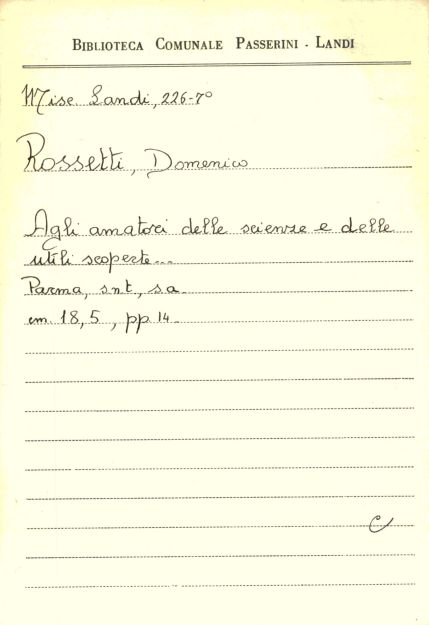 BIBLIOTECA COMUNALE PASSERINI - LANDI
Misc. Landi, 226-7°
Rossetti, Domenico
Agli amatori delle scienze e delle
utili scoperte...
Parma, snt, sa.
cm. 18,5, pp 14.
C